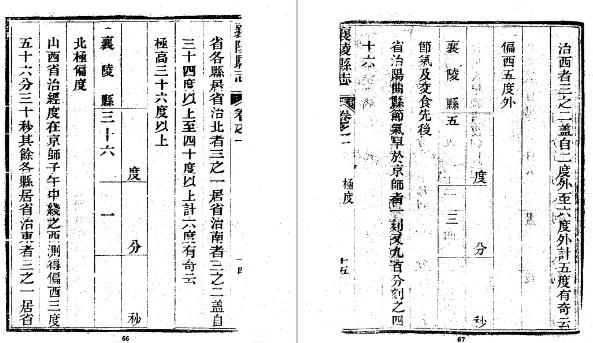 襄陵縣志 卷之一 十四
省各縣居省治北者三之一居省治南者三之二盖自
三十四度以上至四十度以上計六度有奇云
極高三十六度以上
襄陵縣三十六度一分秒
北極偏度
山西省治經度在京師子午中綫之西測得偏西三度
五十六分三十秒其餘各縣居省治東者三之一居省
66
治西者三之二盖自二度外至六度外計五度有奇云
偏西五度外
襄陵縣五度三分秒
節氣及交食先後
省治陽曲縣節氣早於京師者一刻又九百分刻之四
十六
襄陵縣志 卷之一 極度 十五
67